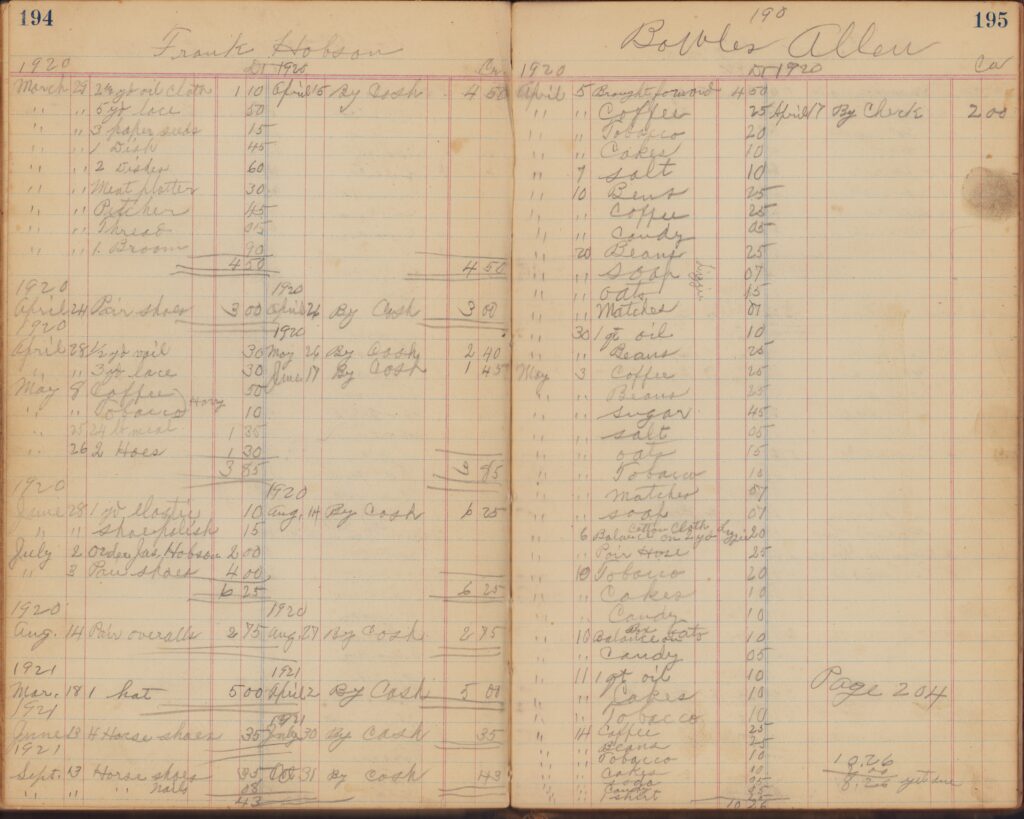 194
Frank Hobson
1920 Dr 1920 Cr.
March 27 2 1/2 yd oil cloth 1 10 April 5 By Cash 4 50
" " 5 yd lace 50
" " 3 paper seeds 15
" " 1 Dish 45
" " 2 Dishes 60
" " Meat platter 30
" " Pitcher 45
" " Thread 05
" " 1 Broom 90
4 50 4 50
1920 1920
April 24 Pair shoes 3 00 April 26 By Cash 3 00
1920 1920
April 28 1/2 yd vail 30 May 26 By Cash 2 40
" " 3 yd lace 30 June 17 By Cash 1 45
May 8 Coffee 50
" " Tobacco Harry 10
" 25 24 lb meal 1 35
" 26 2 Hoes 1 30
3 85 3 85
1920 1920
June 28 1 yd elastic 10 Aug. 14 By Cash 6 25
" " shoe polish 15
July 2 Order Jas. Hobson 2 00
" 3 Pair shoes 4 00
6 25 6 25
1920 1920
Aug. 14 Pair overalls 2 75 Aug 27 By Cash 2 75
1921 1921
Mar. 18 1 hat 5 00 April 2 By Cash 5 00
1921 1921
June 13 4 Horse shoes 35 July 30 By Cash 35
1921
Sept. 13 Horse shoes 35 Oct 31 By Cash 43
" " " Nails 08
43
190
195
Bowles Allen
1920 Dr 1920 Cr
April 5 Brought forward 4 50
" " Coffee 25 April 17 By Check 2 00
" " Tobacco 20
" " Cakes 10
" 7 Salt 10
" 10 Bens 25
" " Coffee 25
" " Candy 05
" 20 Beans 25
" " Soap 07
" " oats 15
" " Matches 07
" 30 1 qt oil 10
" " Beans 25
May 3 Coffee 25
" " Beans 25
" " Sugar 45
" " Salt 05
" " oats 15
" " Tobacco 10
" " Matches 07
" " Soap 07
" 6 Balance on 2 yd Cotton Cloth 20
" " Pair Hose 25
" 10 Tobacco 20
" " Cakes 10
" " Candy 10
" 10 Balance on Box oats 10
" " Candy 05
" 11 1 qt oil 10
" " Cakes 10
" " Tobacco 10
" 14 Coffee 25
" " Beans 25
" " Tobacco 10
" " Cakes 10
" " Soda 05
" " Candy
" " 1 shirt
10 26
Page 204
10.26
2 00
8.26 yet due